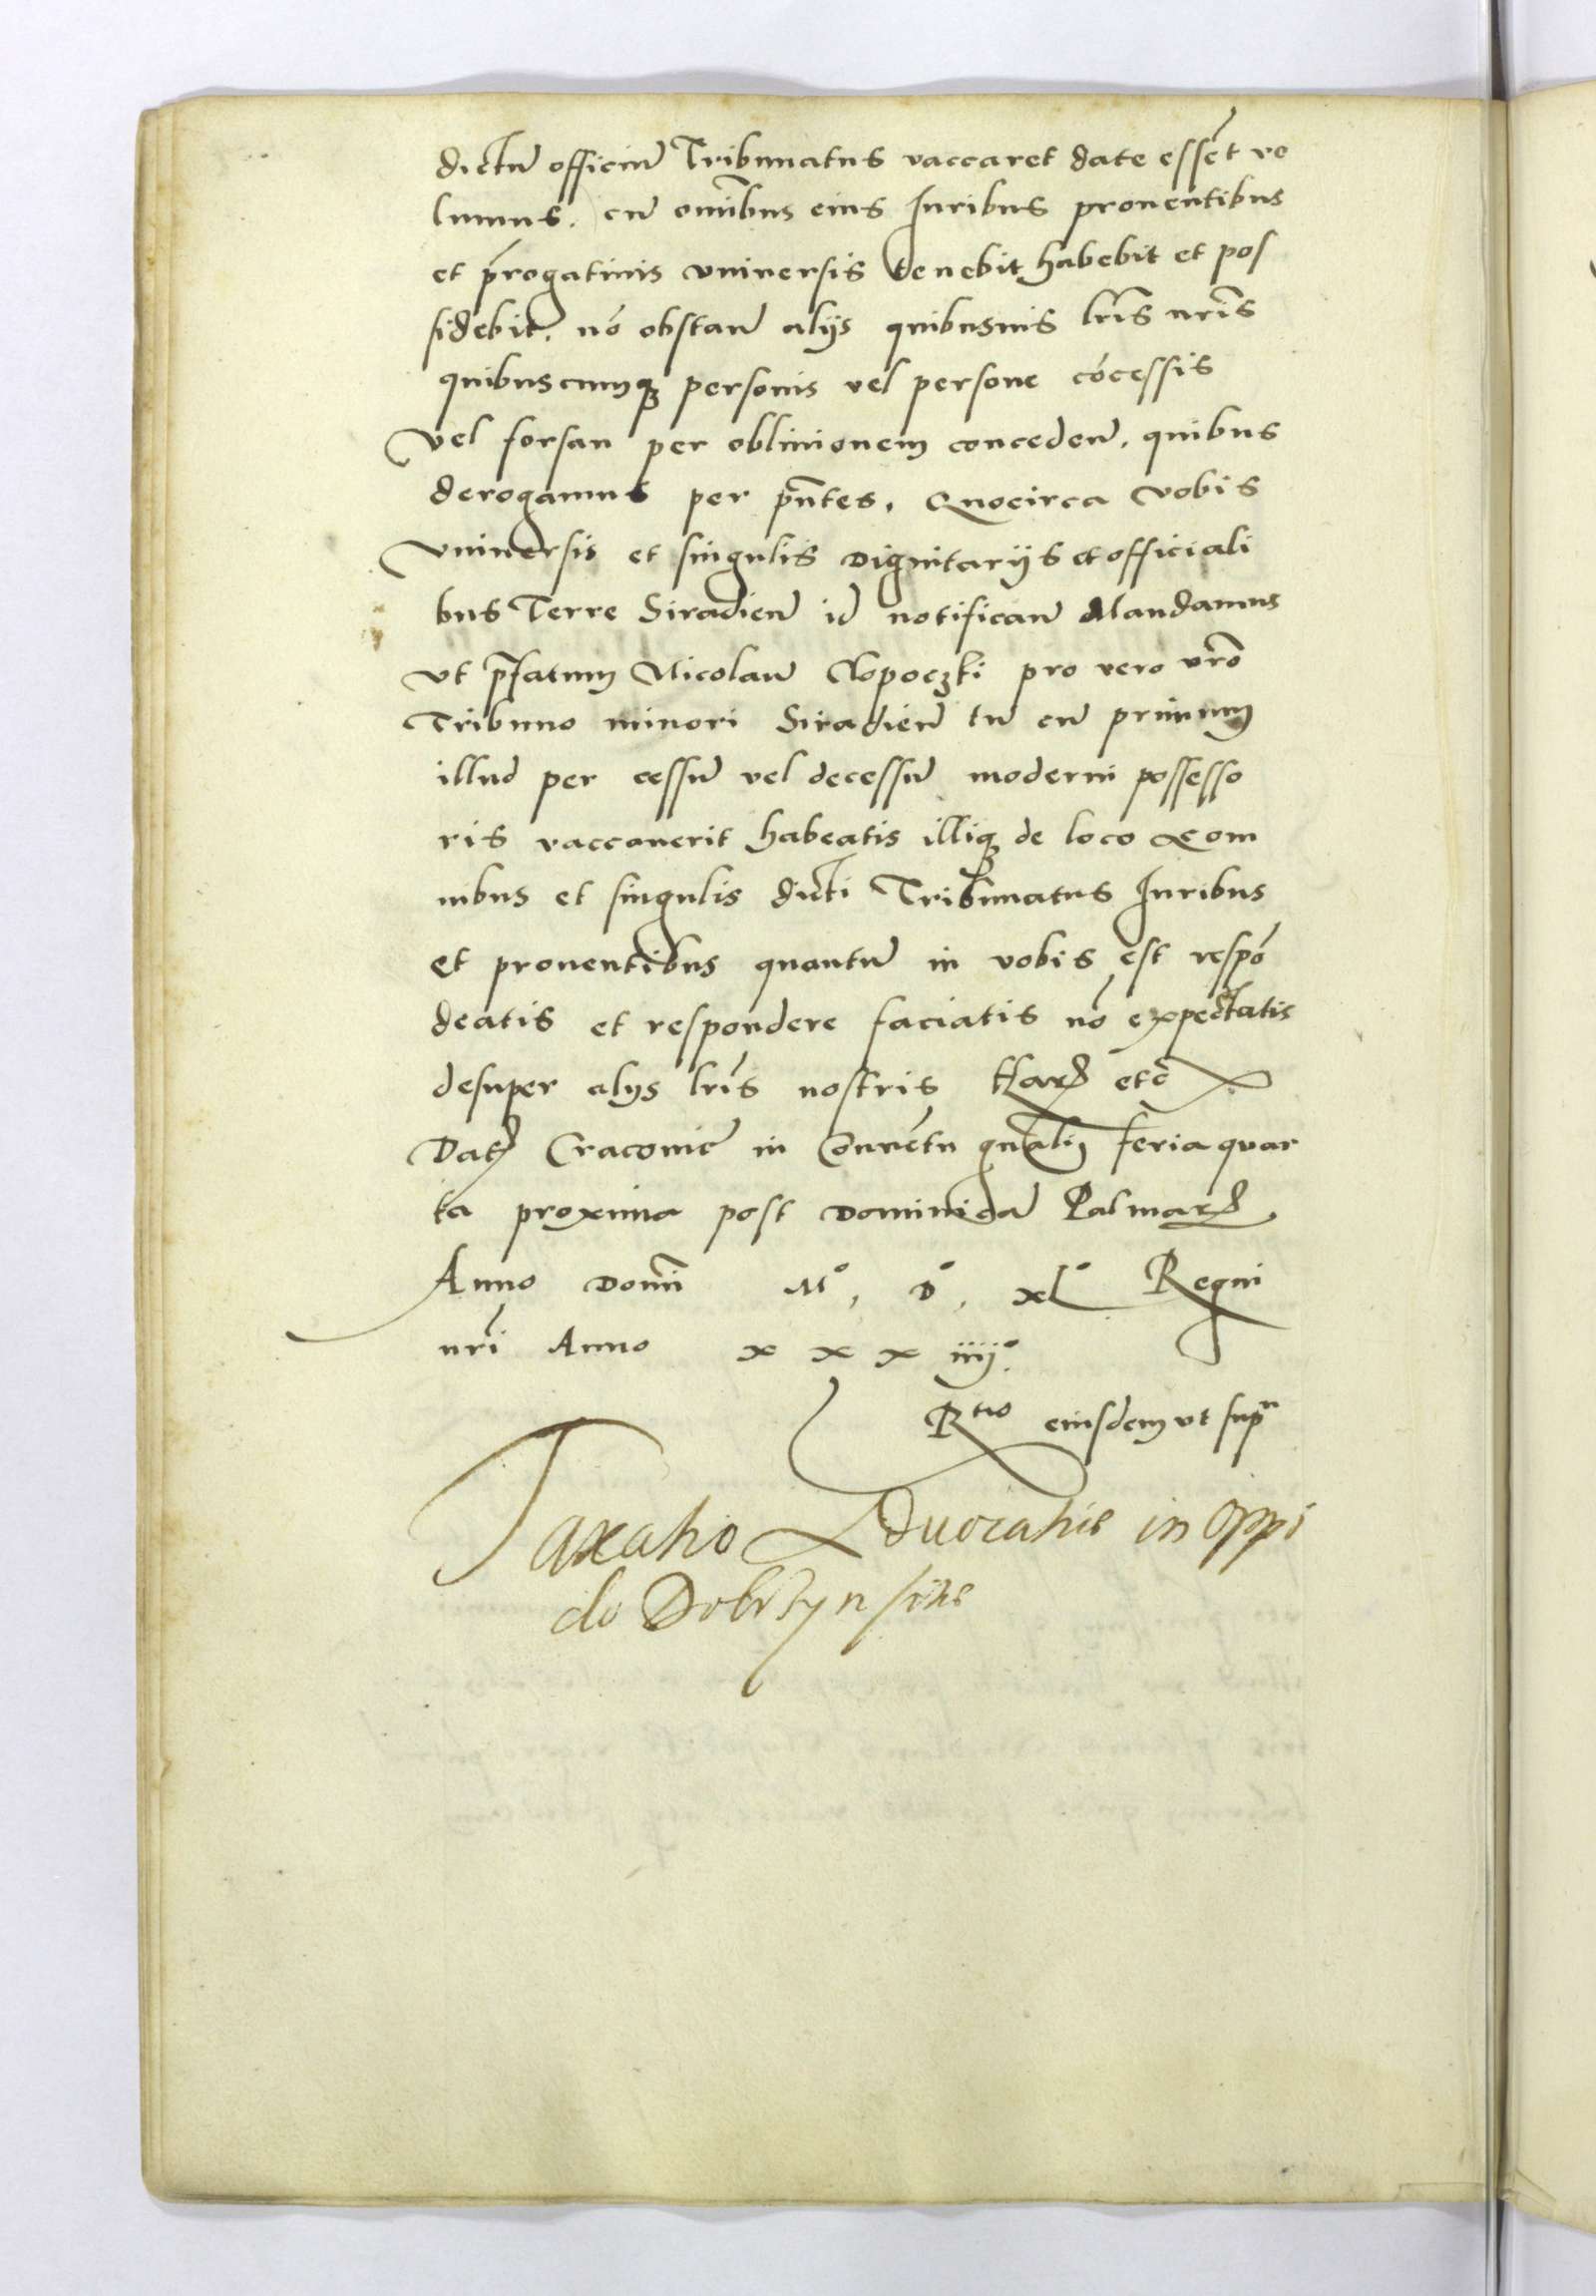 dictū officiū Tribunatus vaccaret date essēt vo
lumus. cū omībus eius Iuribus prouentibus
et p̄rogatiuis vniuersis tenebit habebit et pos
sidebit. nō obstan̄ alijs quibusuis lr̄is nr̄is
quibuscumqꝫ personis vel persone cōcessis
vel forsan per obliuionem conceden̄. quibus
derogamus per pn̄tes. Quocirca vobis
vniuersis et singulis Dignitarijs et officiali
bus Terre Siradien̄ id notifican̄ Mandamus
vt p̄fatum Nicolaū Clopoczki pro vero vr̄o
Tribuno minori Siradien̄ tū cū primum
illud per cessū vel decessū moderni possesso
ris vaccauerit habeatis illiqꝫ de loco & om
nibus et singulis dicti Tribunatus Iuribus
et prouentibus quantū in vobis est respō
deatis et respondere faciatis nō expectatis
desuper alijs lr̄is nostris Harꝝ etc̄
Datꝭ Cracouie in Conuētu gn̄ali feria quar
ta proxima post Dominicā Palmarꝝ
Anno Domi̅ M°, D°, xl° Regni
nr̄i Anno x x x iiij°.
R^tio eiusdem vt sup^a
Taxatio Aduocatie in Oppi
do Dobrzyn site